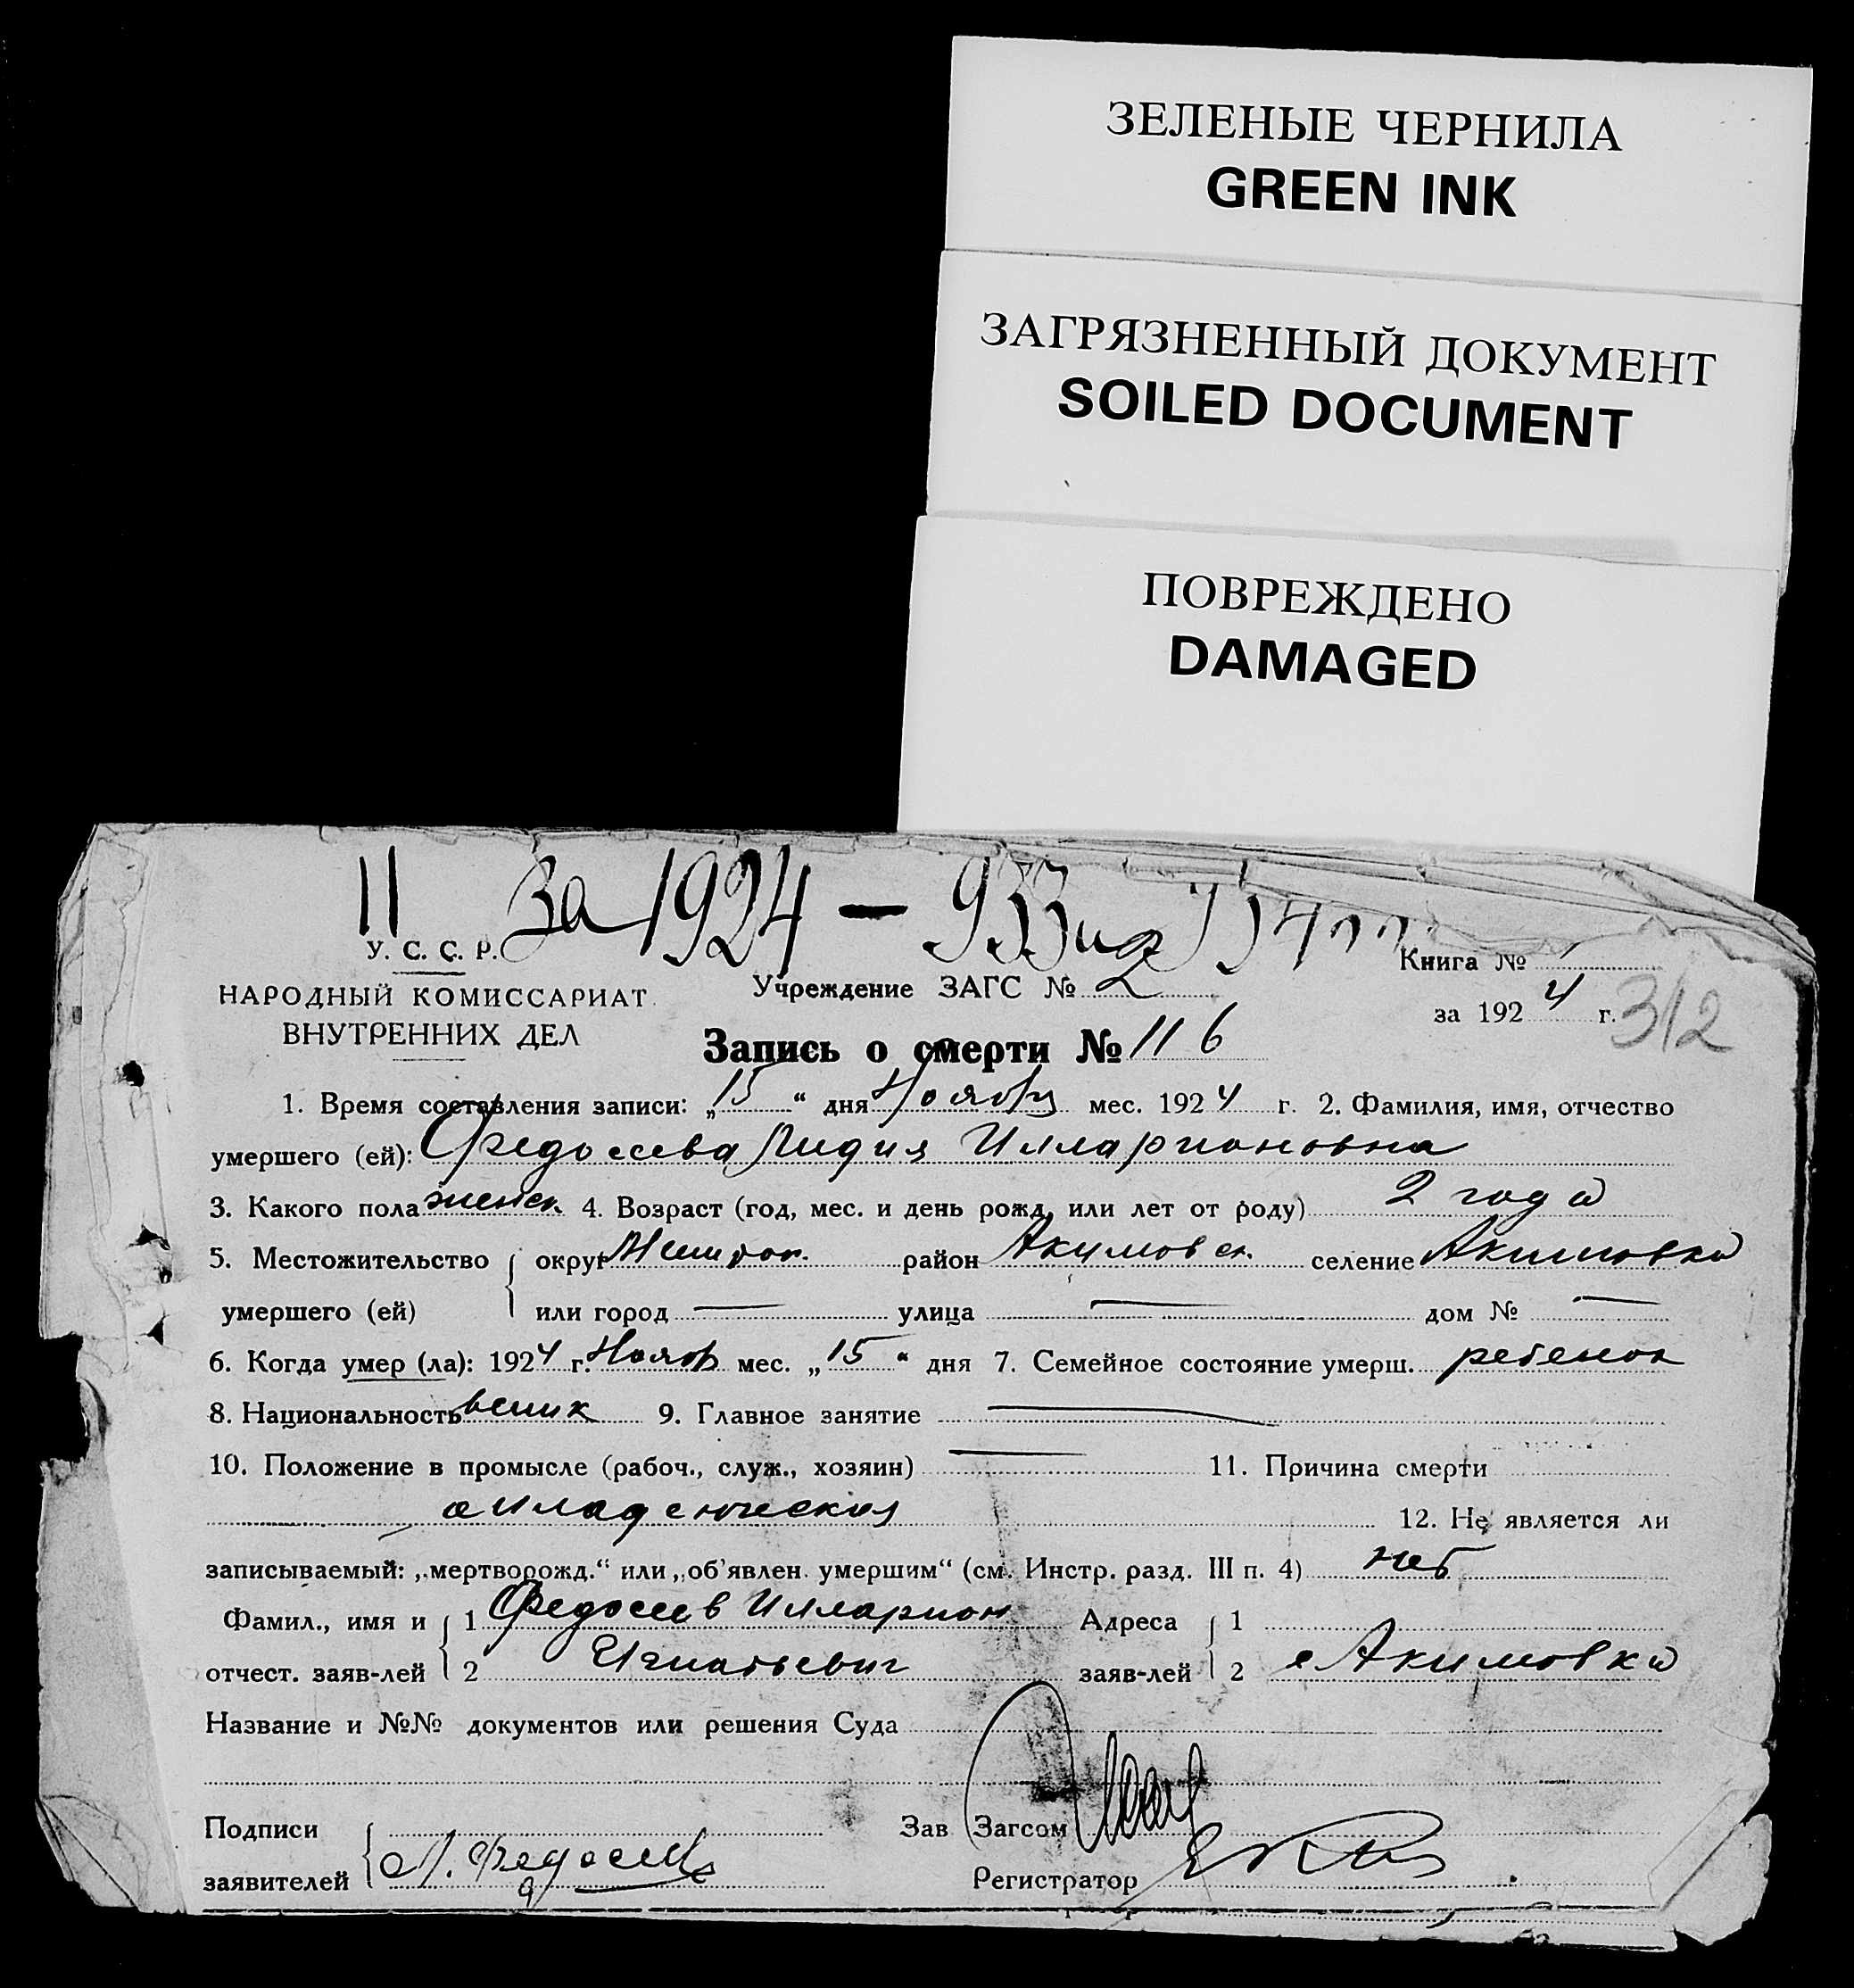 ЗЕЛЕНЫЕ ЧЕРНИЛА
GREEN INK
ЗАГРЯЗНЕННЫЙ ДОКУМЕНТ
SOILED DOCUMENT
ПОВРЕЖДЕНО
DAMAGED
11 За 1924 - 933
У. С. С. Р.
Книга №
НАРОДНЫЙ КОМИССАРИАТ
Учреждение ЗАГС № 2
за 1924 г. 312
ВНУТРЕННИХ ДЕЛ
Запись о смерти № 116
1. Время составления записи: „15“ дня Ноябр мес. 1924 г. 2. Фамилия, имя, отчество
умершего (ей): Федосеева Лидия Илларионовна
3. Какого пола женск. 4. Возраст (год, мес. и день рожд. или лет от роду) 2 года
5. Местожительство округ район Акимовск. селение Акимовка
умершего (ей) или город — улица — дом № —
6. Когда умер (ла): 1924 г. Нояб мес. „15“ дня 7. Семейное состояние умерш. ребенок
8. Национальность 9. Главное занятие —
10. Положение в промысле (рабоч., служ., хозяин) — 11. Причина смерти
младенческая 12. Не является ли
записываемый: „мертворожд.“ или „об'явлен. умершим“ (см. Инстр. разд. III п. 4) нет
Фамил., имя и 1 Федосеев Илларион Адреса 1
отчест. заяв-лей 2 Игнатьевич заяв-лей 2 с Акимовка
Название и №№ документов или решения Суда
Подписи Зав Загсом
заявителей Федосеев Регистратор